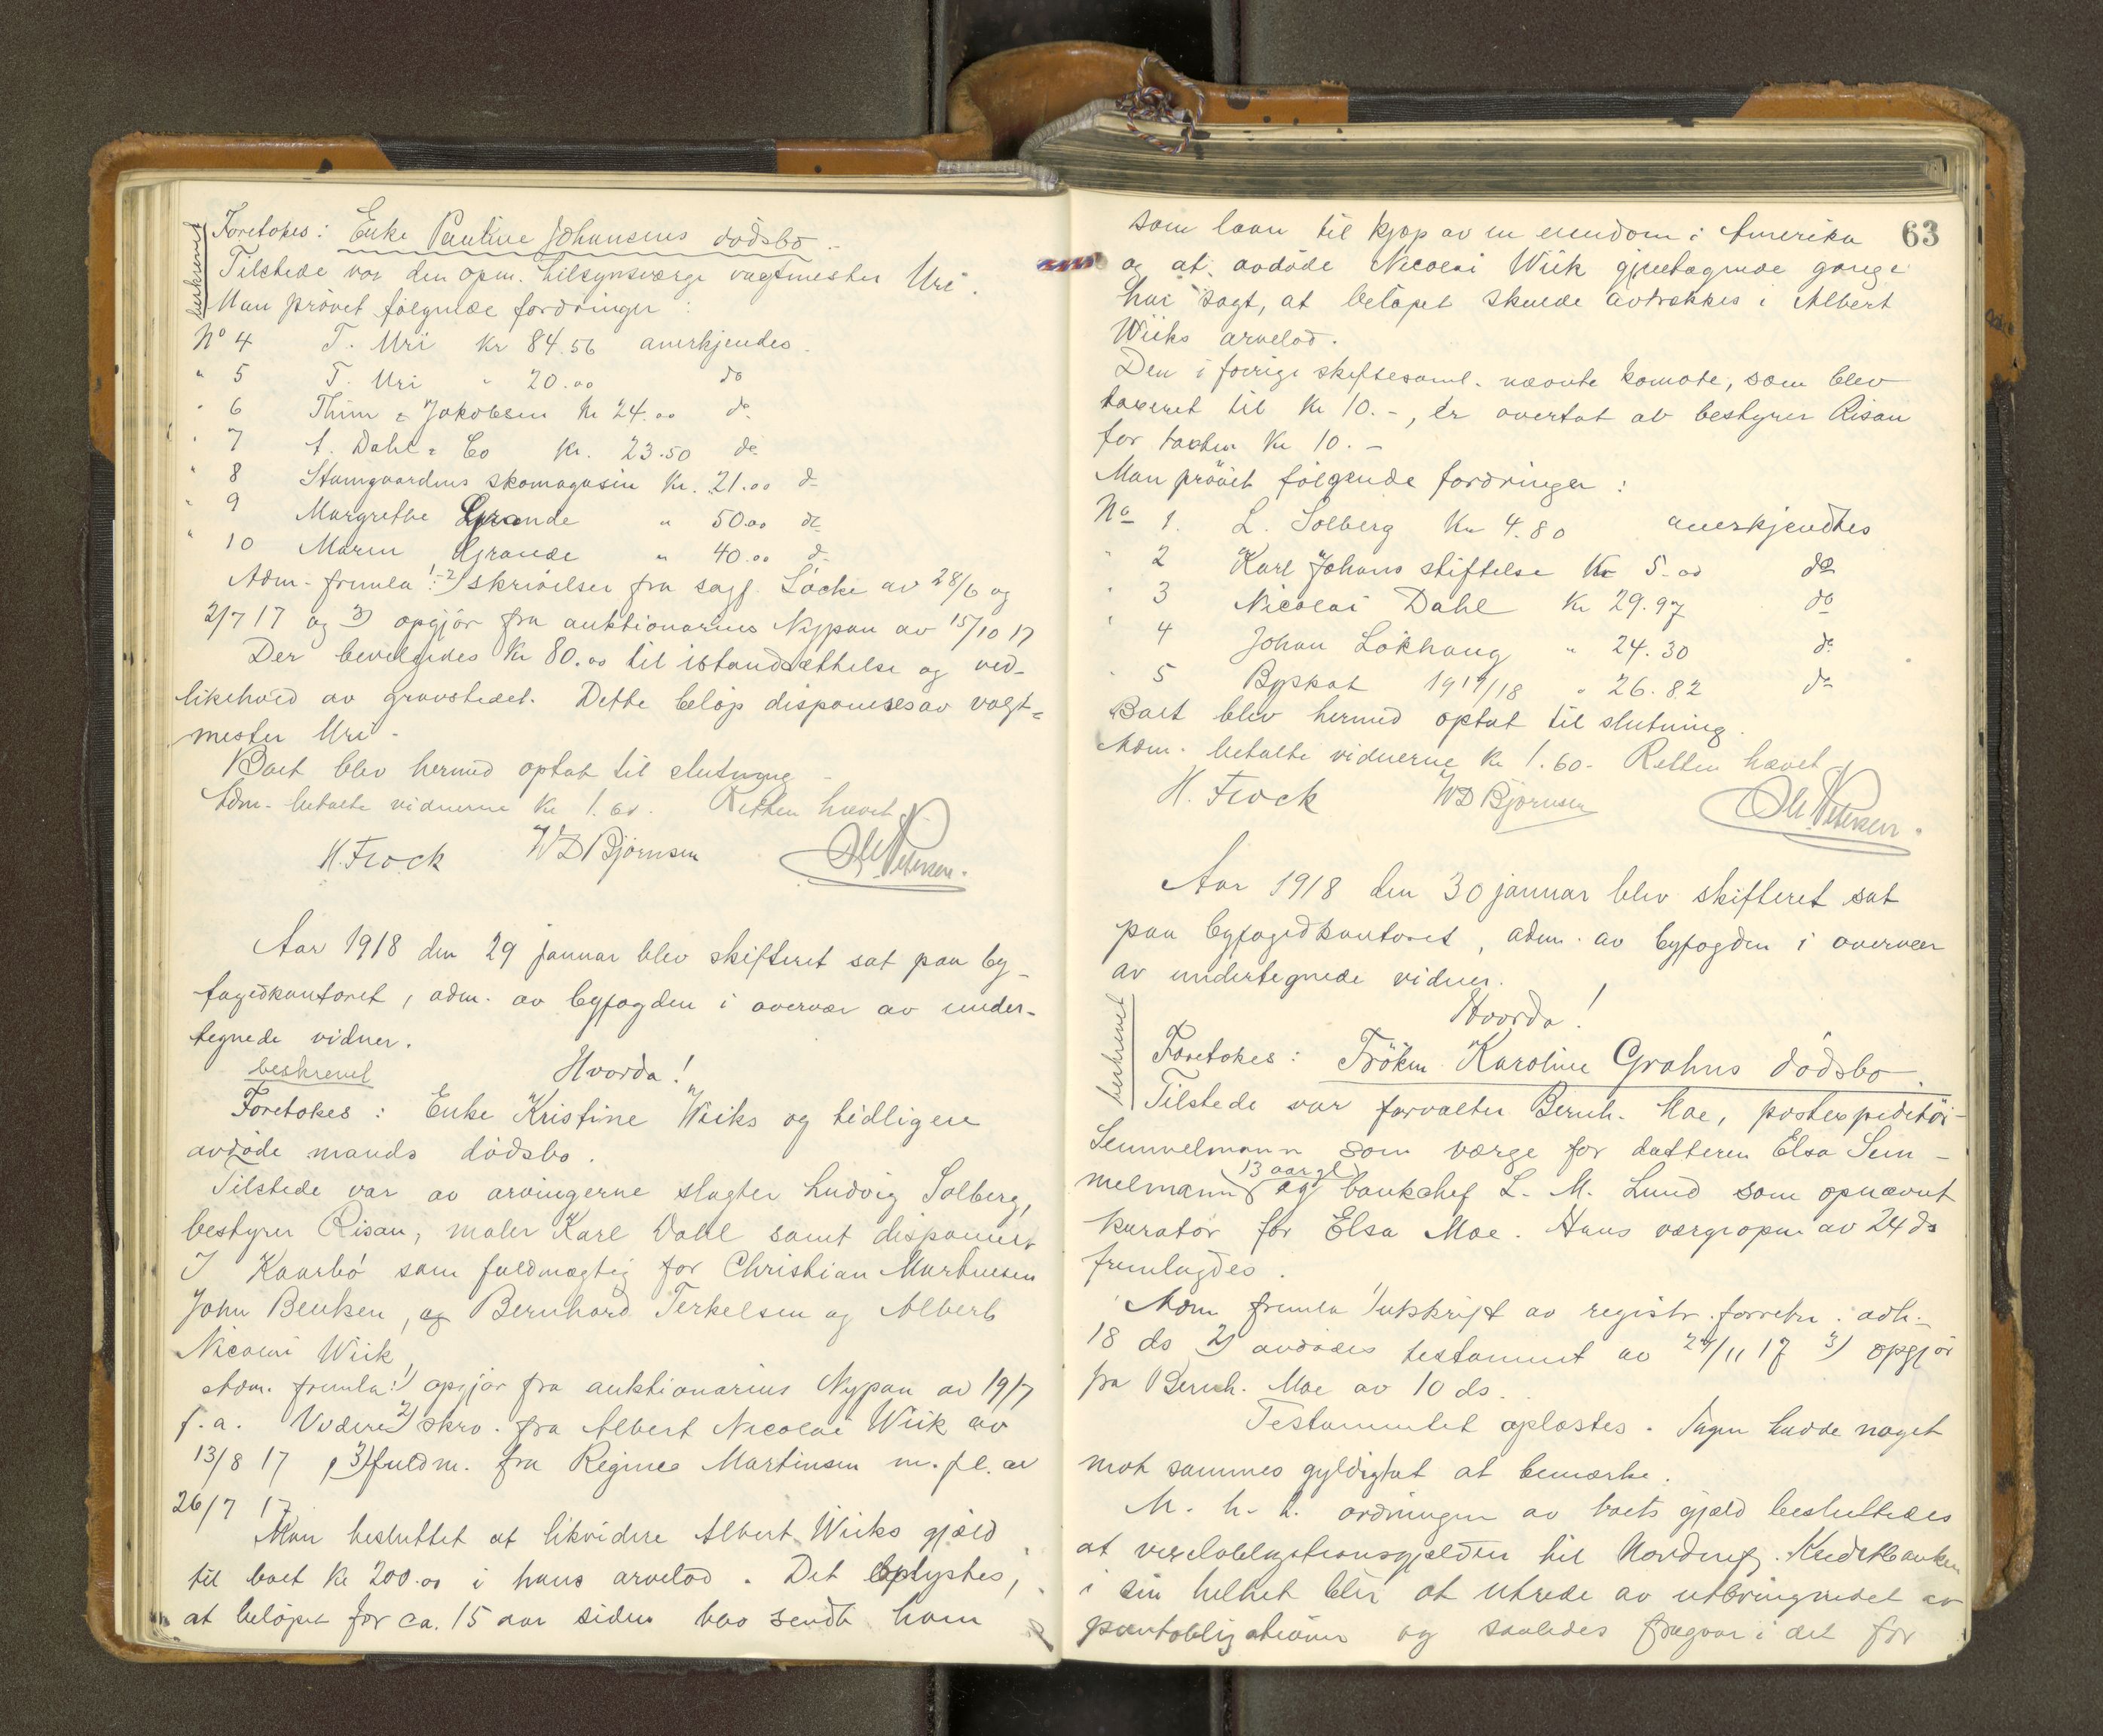 beskrevet
Foretokes: Enke Pauline Johansens dödsbo.
Tilstede var den opn. tilsynsværge vagtmester Uri.
Man prövet fölgende fordringer:
No 4 T. Uri Kr 84.56 anerkjendes.
" 5 T. Uri " 20.00 do
" 6 Thim & Jakobsen Kr 24.00 do
" 7 A. Dahl & Co Kr. 23.50 do
" 8 Skomagasin Kr. 21.00 do
" 9 Margrethe Grande " 50.00 do
" 10 Maren Grande " 40.00 do
Adm. fremla 1-2) skrivelser fra sagf. Löcke av 28/6 og
2/7 17 og 3) opgjör fra auktionarius Nypan av 15/10 17
Der bevilgedes Kr 80.00 til istandsættelse og ved-
likehold av gravstedet. Dette belöp disponeres av vagt-
mester Uri.
Boet blev hermed optat til slutning.
Adm. betalte vidnerne Kr 1.60. Retten hævet
H. Frock WD Björnsen Ole Petersen.
Aar 1918 den 29 januar blev skifteret sat paa by-
fogedkontoret, adm. av byfogden i overvær av under-
tegnede vidner.
beskrevet Hvorda!
Foretokes: Enke Kristine Wiiks og tidligere
avdöde mands dödsbo.
Tilstede var av arvingerne slagter Ludvig Solberg,
bestyrer Risan, maler Karl Dahl samt disponent
J Kaarbö som fuldmægtig for Christian Martinsen
John Benksen, og Bernhard Terkelsen og Albert
Nicolai Wiik
Adm. fremla: 1) opgjör fra auktionarius Nypan av 19/7
f.a. Videre 2) skr. fra Albert Nicolai Wiik av
13/8 17, 3) fuldm. fra Regine Martinsen m. fl. av
26/7 17
Man besluttet at likvidere Albert Wiiks gjæld
til boet Kr 200.00 i hans arvelod. Det oplystes,
at belöpet for ca. 15 aar siden var sendt ham
63
som laan til kjöp av en eiendom i Amerika
og at avdöde Nicolai Wiik gjentagende gange
har sagt, at belöpet skulde avtrækkes i Albert
Wiiks arvelod.
Den i forrige skiftesaml. nævnte komode, som blev
taxeret til Kr 10.-, er overtat av bestyrer Risan
for taxten Kr 10.-
Man prövet fölgende fordringer:
No 1. L. Solberg Kr 4.80 anerkjendtes
" 2 Karl Johans stiftelse Kr 5.00 do
" 3 Nicolai Dahl Kr 29.97 do
" 4 Johan Lökhaug " 24.30 do
" 5 Byskat 1917/18 " 26.82 do
Boet blev hermed optat til slutning.
Adm. betalte vidnerne Kr 1.60. Retten hævet
H. Frock WD Björnsen Ole Petersen.
Aar 1918 den 30 januar blev skifteret sat
paa byfogedkontoret, adm. av byfogden i overvær
av undertegnede vidner.
Hvorda!
beskrevet
Foretokes: Fröken Karoline Grahns dödsbo.
Tilstede var forvalter Bernh. Moe, postexpeditör
Semmelmann som værge for datteren Elsa Sem-
melmann 13 aar gl. og banksjef L. M. Lund som opnævnt
kurator for Elsa Moe. Hans værgeopn. av 24 ds
fremlagdes.
Adm fremla 1) utskrift av registr. forretn. avh.
18 ds 2) avdödes testament av 24/11 17 3) opgjör
fra Bernh. Moe av 10 ds.
Testamentet oplæstes. Ingen hadde noget
mot sammes gyldighet at bemærke.
M. h. t. ordningen av boets gjæld besluttedes
at vexelobligationsgjælden til Nordenf. Kreditbanken
i sin helhet blir at utrede av utbringendet av
pantobligationen og saaledes fragaar i det for